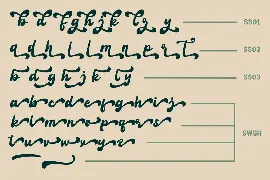 b d f g h j k l z y SS01
a d h i l m n e r t SS02
b d g h j k t y SS03
a b c d e f g h i j
k l m n o p q r s SWSH
t u v w x y z